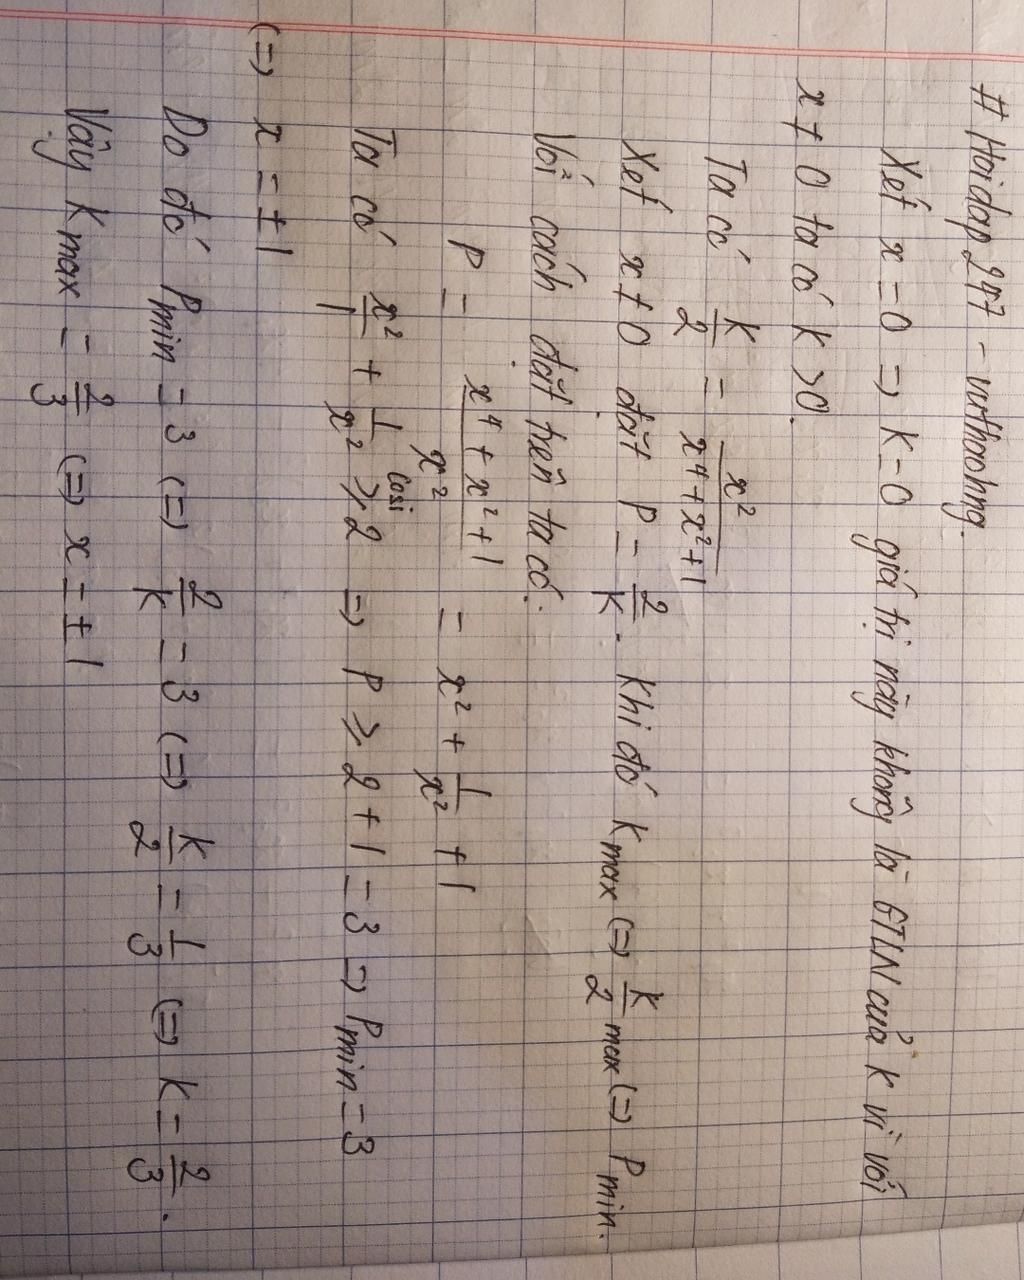 # Hoidap 247 - nuthaohng.
Xét x = 0 => K = 0 giá trị này không là GTLN của K vì với
x ≠ 0 ta có K > 0.
Ta có K/2 = x²/(x⁴ + x² + 1)
Xét x ≠ 0 đặt P = 2/K. Khi đó Kmax <=> K/2 max <=> Pmin.
Với cách đặt trên ta có:
P = (x⁴ + x² + 1)/x² = x² + 1/x² + 1
Ta có x²/1 + 1/x² ≥ 2 => P ≥ 2 + 1 = 3 => Pmin = 3
cosi
<=> x = ± 1
Do đó Pmin = 3 <=> 2/K = 3 <=> K/2 = 1/3 <=> K = 2/3.
Vậy Kmax = 2/3 <=> x = ± 1